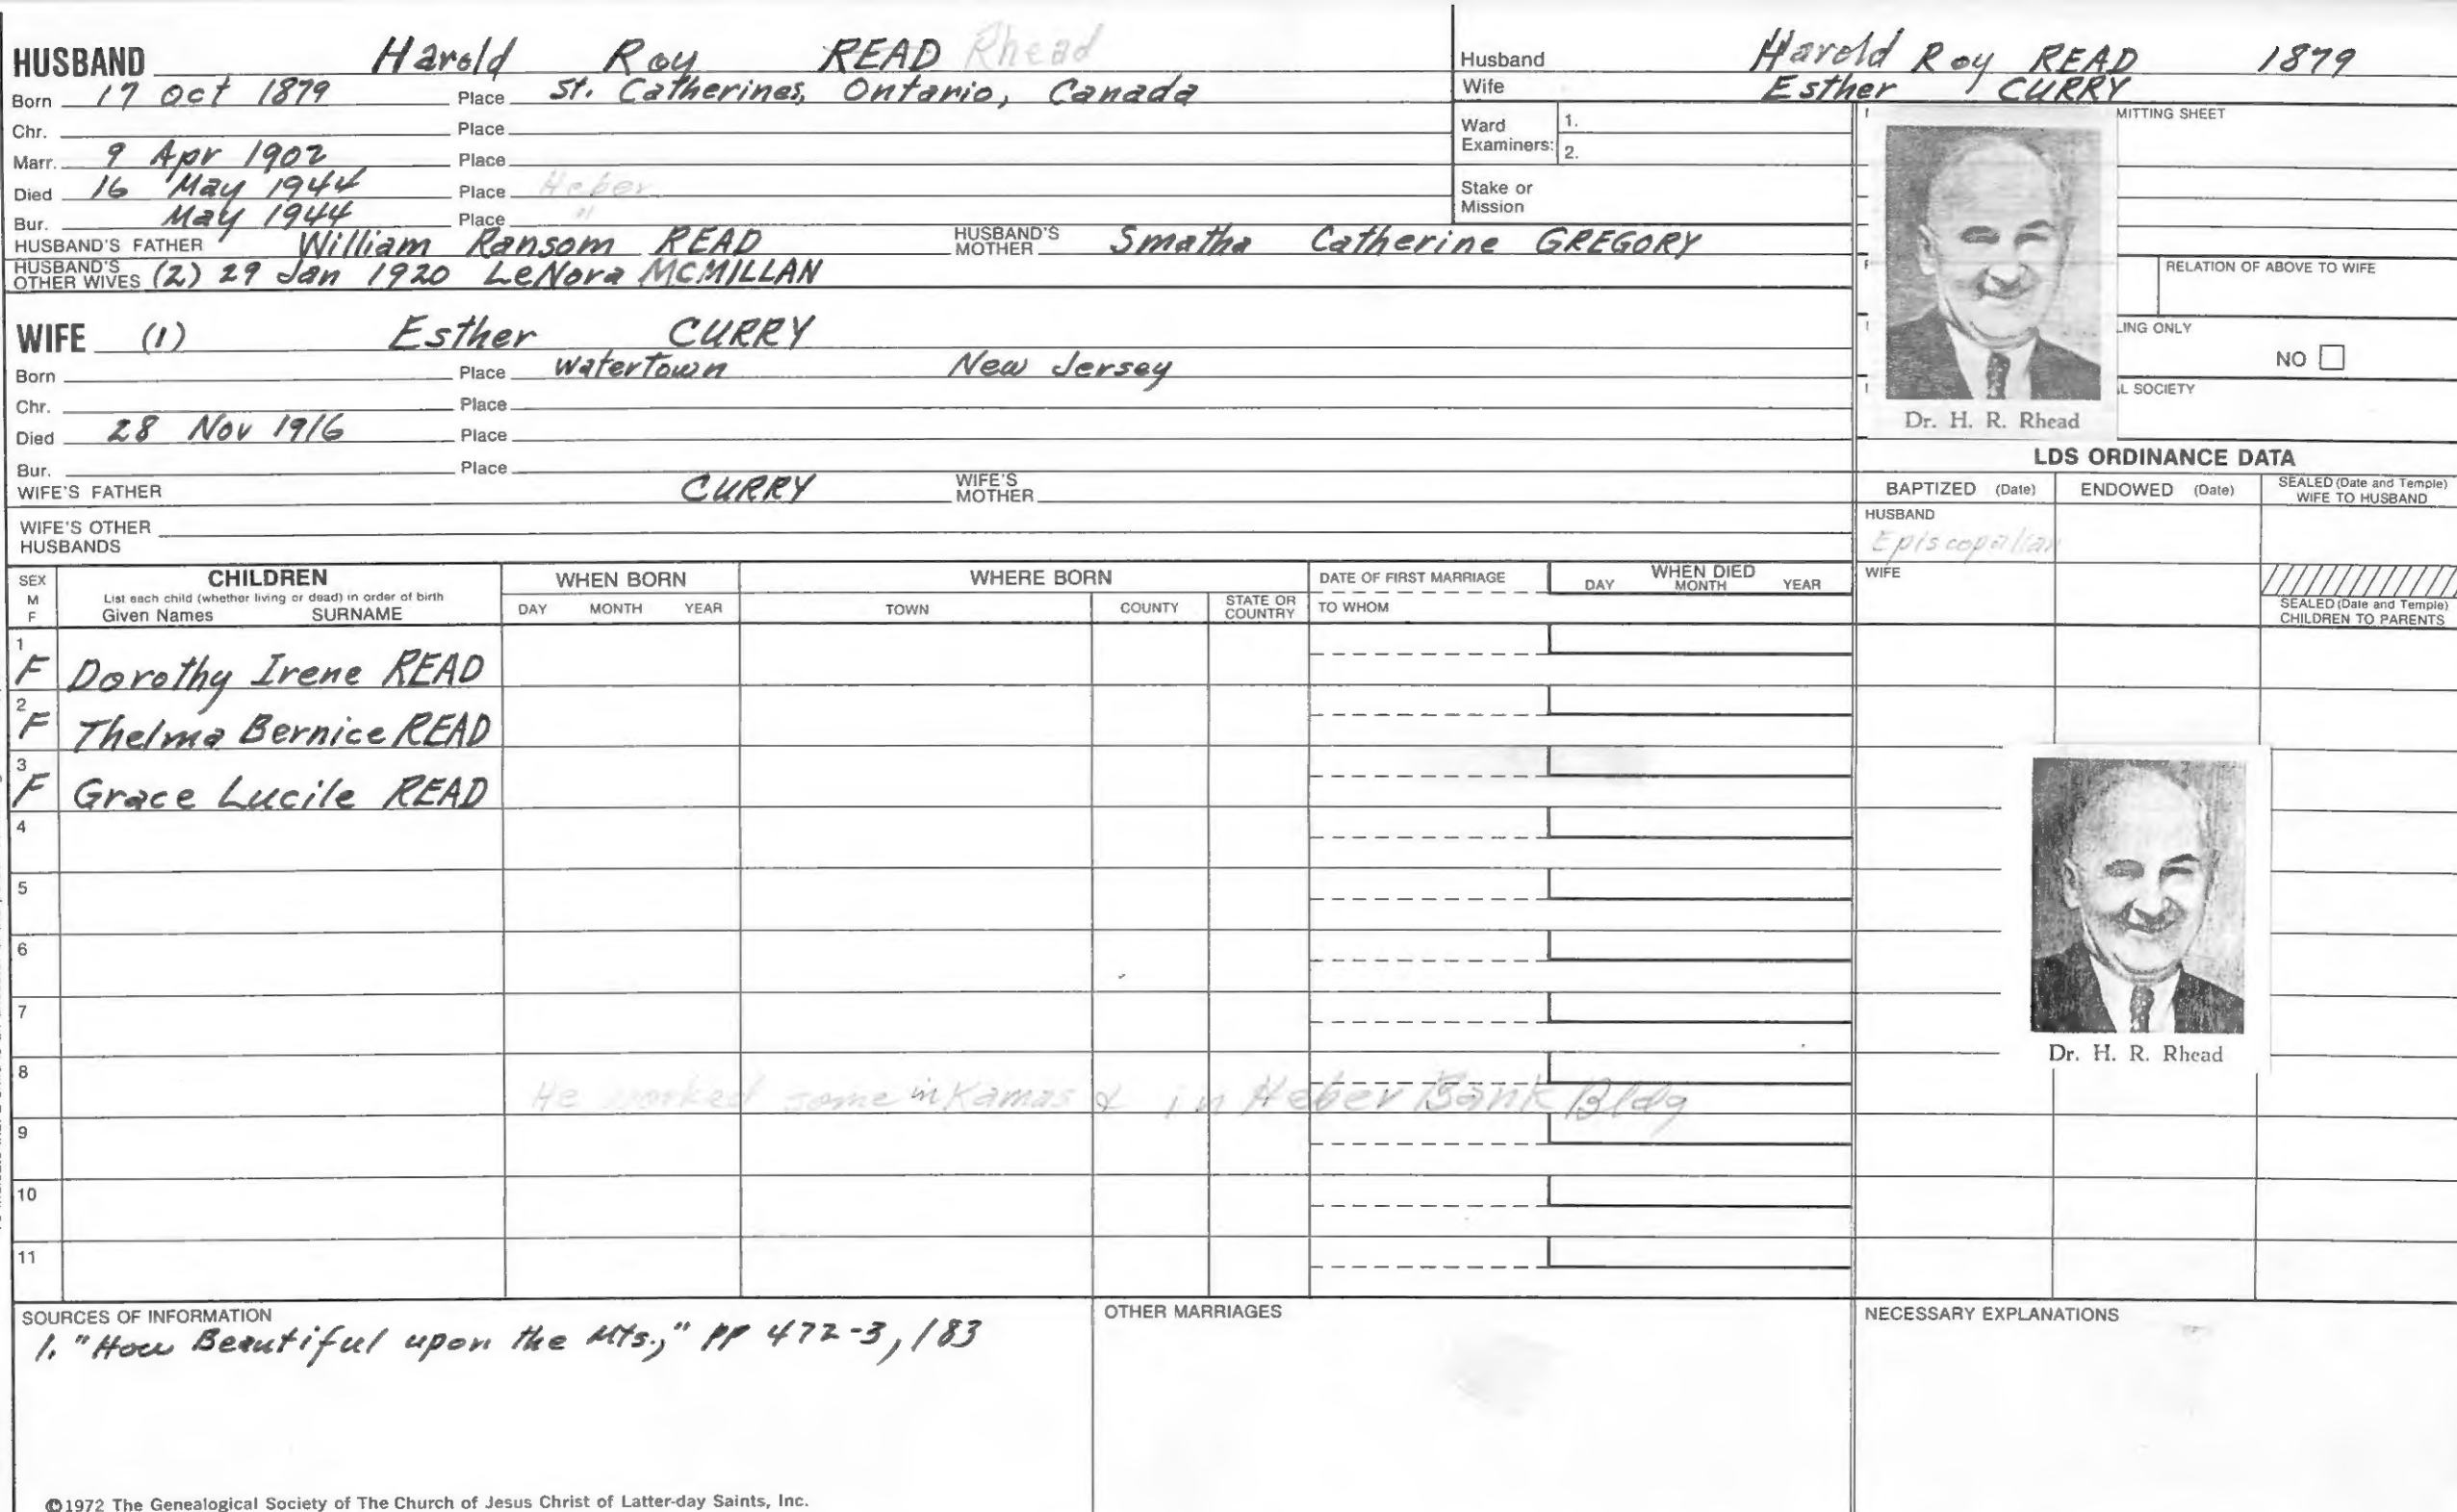 HUSBAND Harold Roy READ Rhead
Born 17 Oct 1879 Place St. Catherines, Ontario, Canada
Chr. Place
Marr. 9 Apr 1902 Place
Died 16 May 1944 Place Heber
Bur. May 1944 Place "
HUSBAND'S FATHER William Ransom READ HUSBAND'S MOTHER Smatha Catherine GREGORY
HUSBAND'S OTHER WIVES (2) 29 Jan 1920 LeNora MCMILLAN
WIFE (1) Esther CURRY
Born Place Watertown New Jersey
Chr. Place
Died 28 Nov 1916 Place
Bur. Place
WIFE'S FATHER CURRY WIFE'S MOTHER
WIFE'S OTHER HUSBANDS
Husband Harold Roy READ 1879
Wife Esther CURRY
Ward Examiners: 1.
2.
Stake or Mission
MITTING SHEET
RELATION OF ABOVE TO WIFE
LING ONLY
NO
L SOCIETY
Dr. H. R. Rhead
LDS ORDINANCE DATA
BAPTIZED (Date) ENDOWED (Date) SEALED (Date and Temple) WIFE TO HUSBAND
HUSBAND
Episcopalian
WIFE
SEALED (Date and Temple) CHILDREN TO PARENTS
SEX M F CHILDREN WHEN BORN WHERE BORN DATE OF FIRST MARRIAGE WHEN DIED
List each child (whether living or dead) in order of birth
Given Names SURNAME DAY MONTH YEAR TOWN COUNTY STATE OR COUNTRY TO WHOM DAY MONTH YEAR
1 F Dorothy Irene READ
2 F Thelma Bernice READ
3 F Grace Lucile READ
4
5
6
7
Dr. H. R. Rhead
8
He worked some in Kamas & in Heber Bank Bldg
9
10
11
SOURCES OF INFORMATION
1. "How Beautiful upon the Mts.," pp 472-3, 183
OTHER MARRIAGES
NECESSARY EXPLANATIONS
©1972 The Genealogical Society of The Church of Jesus Christ of Latter-day Saints, Inc.